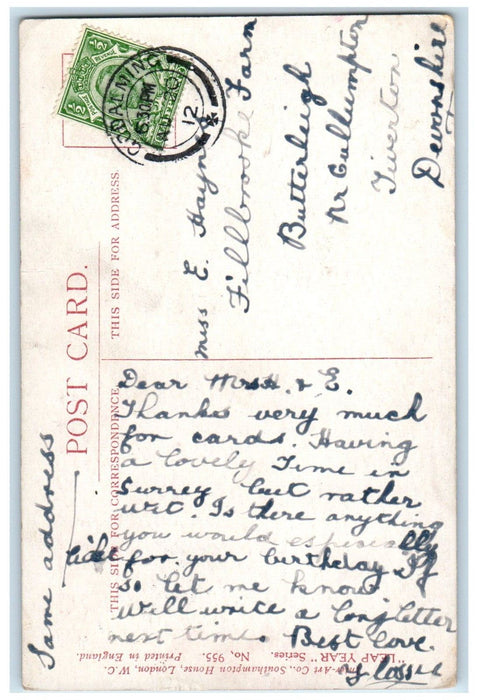 POST CARD.
THIS SIDE FOR CORRESPONDENCE
THIS SIDE FOR ADDRESS.
POSTAGE REVENUE
½ ½
GODALMING
6.30PM
12
Miss E. Hayne
Fillbrooke Farm
Butterleigh
Nr Cullumpton
Tiverton
Devonshire
Dear Mrs H. & E.
Thanks very much
for cards. Having
a lovely Time in
Surrey but rather
wet. Is there anything
you would especially
like for your birthday If
so let me know
Will write a long letter
next time. Best love.
Flossie
Same address
"LEAP YEAR" Series. No. 955. Printed in England.
Inter-Art Co., Southampton House, London, W.C.